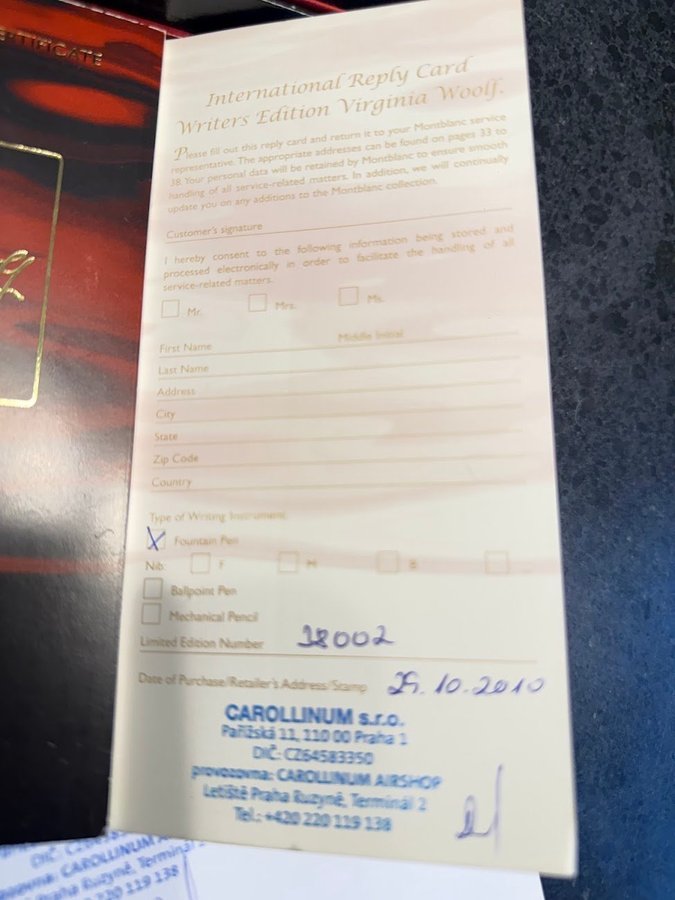 International Reply Card
Writers Edition Virginia Woolf.
Please fill out this reply card and return it to your Montblanc service
representative. The appropriate addresses can be found on pages 33 to
38. Your personal data will be retained by Montblanc to ensure smooth
handling of all service-related matters. In addition, we will continually
update you on any additions to the Montblanc collection.
Customer's signature
I hereby consent to the following information being stored and
processed electronically in order to facilitate the handling of all
service-related matters.
Mr. Mrs. Ms.
First Name Middle Initial
Last Name
Address
City
State
Zip Code
Country
Type of Writing Instrument
X Fountain Pen
Nib: F M B
Ballpoint Pen
Mechanical Pencil
Limited Edition Number 18002
Date of Purchase/Retailer's Address/Stamp 29.10.2010
CAROLLINUM s.r.o.
Pařížská 11, 110 00 Praha 1
DIČ: CZ64583350
provozovna: CAROLLINUM AIRSHOP
Letiště Praha Ruzyně, Terminál 2
Tel.: +420 220 119 138
CAROLLINUM
Praha Ruzyně, Terminál
220 119 138